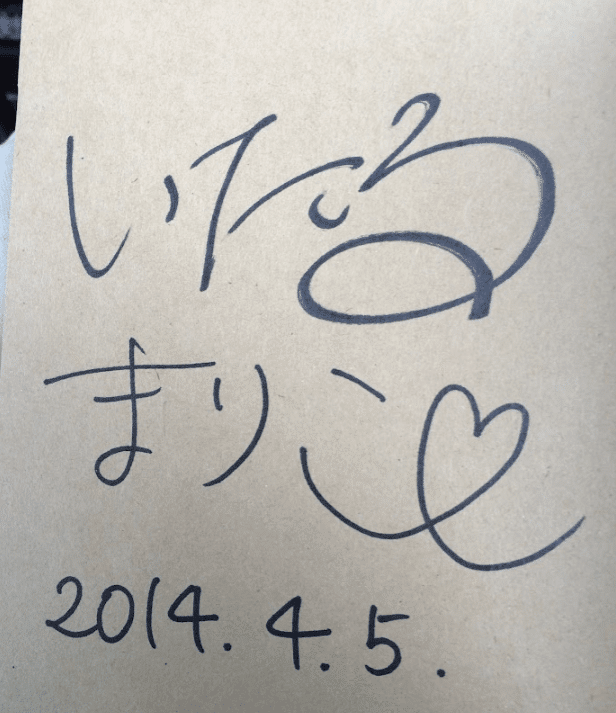 いたる
まりこ♡
2014.4.5.